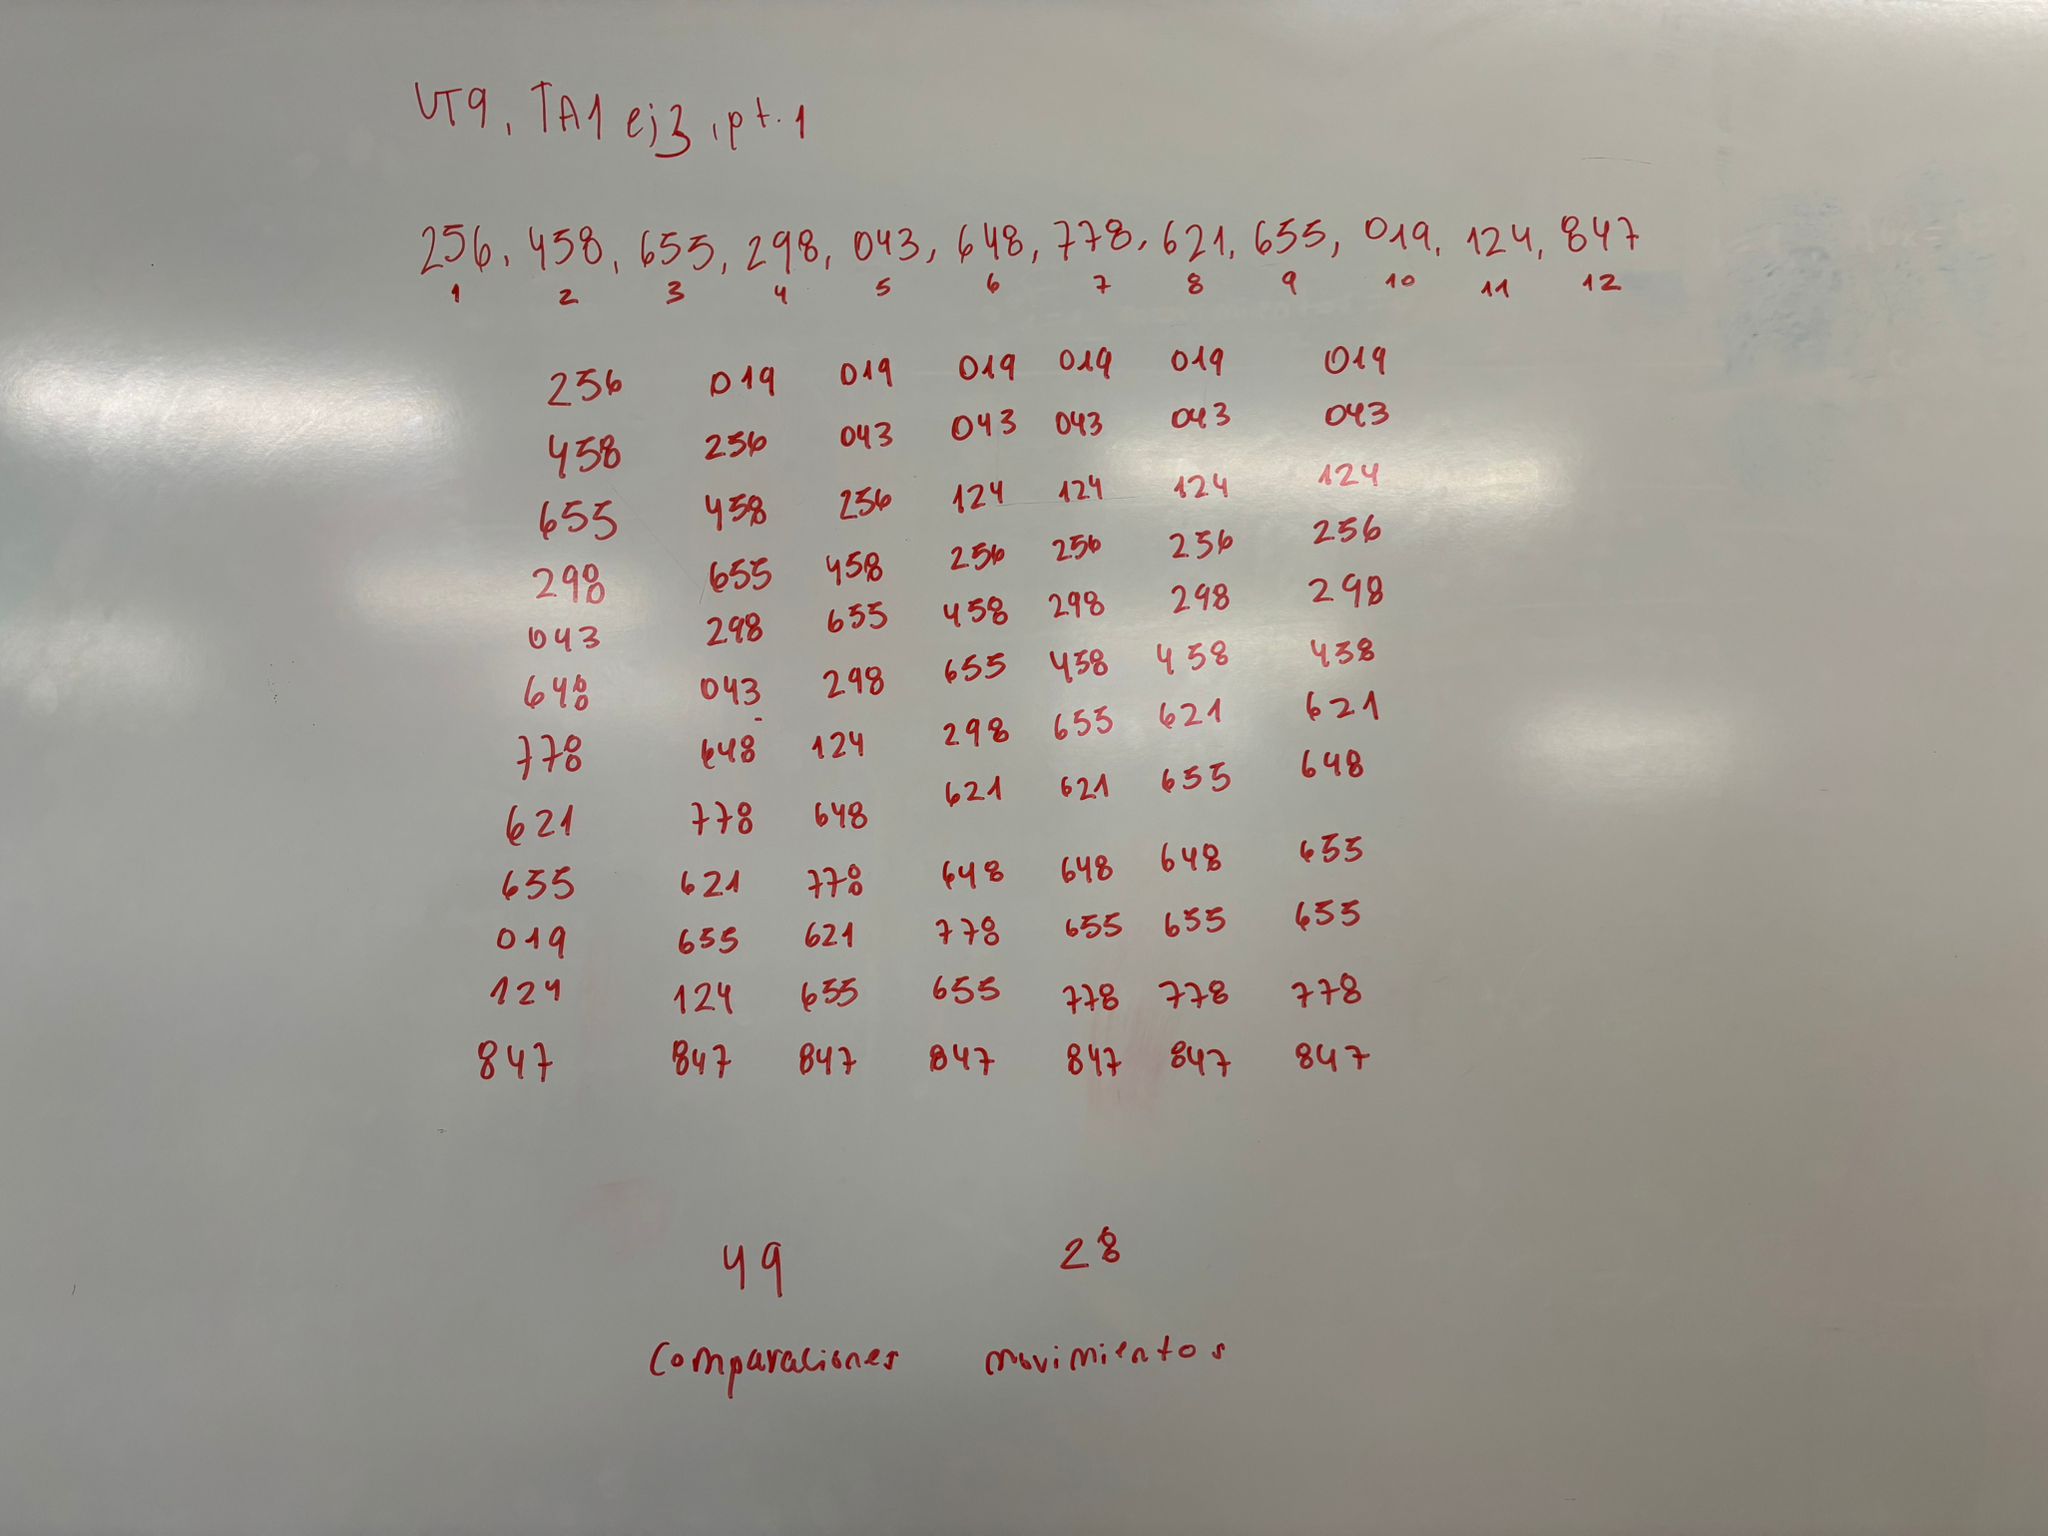 UT9, TA1 ej3, pt.1
256, 458, 655, 298, 043, 648, 778, 621, 655, 019, 124, 847
1 2 3 4 5 6 7 8 9 10 11 12
256 019 019 019 019 019 019
458 256 043 043 043 043 043
655 458 256 124 124 124 124
298 655 458 256 256 256 256
043 298 655 458 298 298 298
648 043 298 655 458 458 458
778 648 124 298 655 621 621
621 778 648 621 621 655 648
655 621 778 648 648 648 655
019 655 621 778 655 655 655
124 124 655 655 778 778 778
847 847 847 847 847 847 847
49 28
Comparaciones movimientos